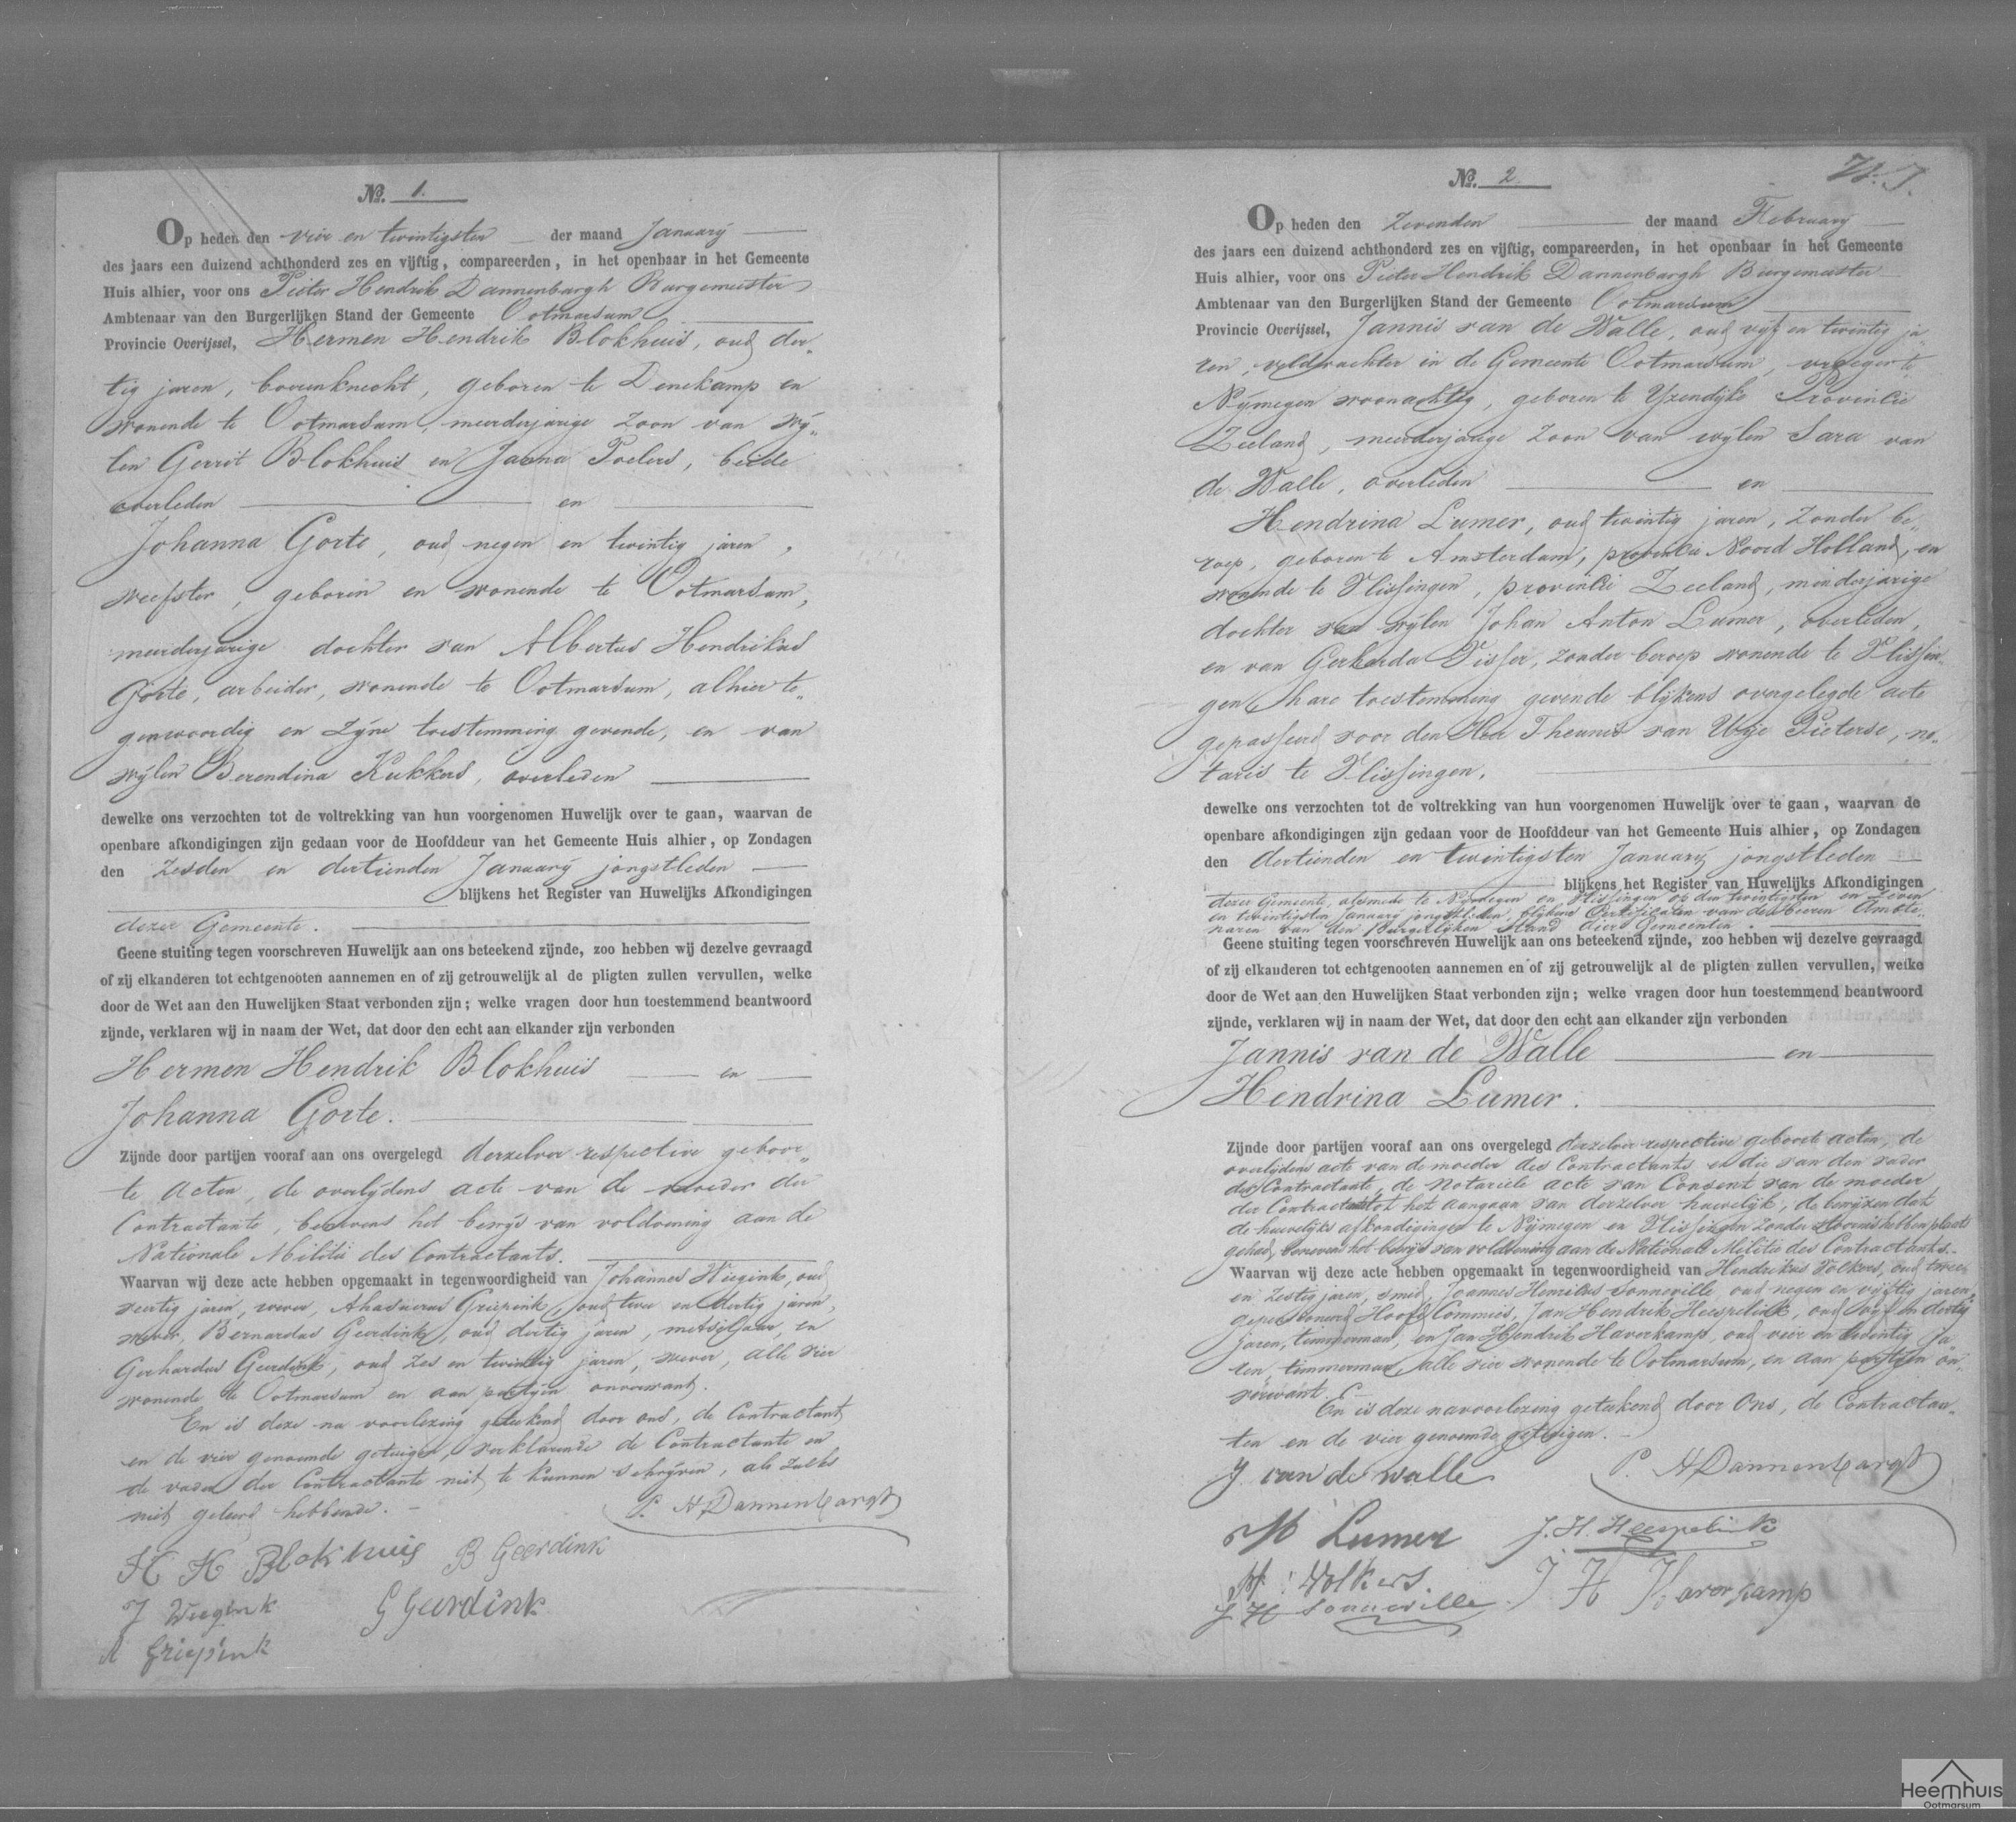 No. 1.
Op heden den vier en twintigsten der maand January
des jaars een duizend achthonderd zes en vijftig, compareerden, in het openbaar in het Gemeente
Huis alhier, voor ons Pieter Hendrik Dannenbargh Burgemeester
Ambtenaar van den Burgerlijken Stand der Gemeente Ootmarsum
Provincie Overijssel, Hermen Hendrik Blokhuis, oud der„
tig jaren, boerenknecht, geboren te Denekamp en
wonende te Ootmarsum, meerderjarige zoon van wy„
len Gerrit Blokhuis en Janna Poelers, beide
overleden en
Johanna Gorte, oud negen en twintig jaren,
weefster, geboren en wonende te Ootmarsum,
meerderjarige dochter van Albertus Hendrikus
Gorte, arbeider, wonende te Ootmarsum, alhier te„
genwoordig en zyne toestemming gevende, en van
wylen Berendina Kukkers, overleden
dewelke ons verzochten tot de voltrekking van hun voorgenomen Huwelijk over te gaan, waarvan de
openbare afkondigingen zijn gedaan voor de Hoofddeur van het Gemeente Huis alhier, op Zondagen
den zesden en dertienden January jongstleden
blijkens het Register van Huwelijks Afkondigingen
dezer Gemeente.
Geene stuiting tegen voorschreven Huwelijk aan ons beteekend zijnde, zoo hebben wij dezelve gevraagd
of zij elkanderen tot echtgenooten aannemen en of zij getrouwelijk al de pligten zullen vervullen, welke
door de Wet aan den Huwelijken Staat verbonden zijn; welke vragen door hun toestemmend beantwoord
zijnde, verklaren wij in naam der Wet, dat door den echt aan elkander zijn verbonden
Hermen Hendrik Blokhuis en
Johanna Gorte.
Zijnde door partijen vooraf aan ons overgelegd derzelver respective geboor„
te acten, de overlydens acte van de moeder der
Contractante, benevens het bewys van voldoening aan de
Nationale Militie des Contractants.
Waarvan wij deze acte hebben opgemaakt in tegenwoordigheid van Johannes Wiegink, oud
veertig jaren, wever, Ahasuerus Griepink, oud twee en dertig jaren,
wever, Bernardus Geerdink, oud dertig jaren, metselaar, en
Gerhardus Geerdink, oud zes en twintig jaren, wever, alle vier
wonende te Ootmarsum en aan partyen onverwant.
En is deze na voorlezing geteekend door ons, de Contractant
en de vier genoemde getuigen, verklarende de Contractante en
de vader der Contractante niet te kunnen schryven, als zulks
niet geleerd hebbende.
P. H Dannenbargh
H H Blokhuis B Geerdink
J Wiegink G Geerdink
A Griepink
No. 2.
Op heden den zevenden der maand February
des jaars een duizend achthonderd zes en vijftig, compareerden, in het openbaar in het Gemeente
Huis alhier, voor ons Pieter Hendrik Dannenbargh Burgemeester
Ambtenaar van den Burgerlijken Stand der Gemeente Ootmarsum
Provincie Overijssel, Jannis van de Walle, oud vyf en twintig ja„
ren, veldwachter in de Gemeente Ootmarsum, vroeger te
Nymegen woonachtig, geboren te Yzendyke Provincie
Zeeland, meerderjarige zoon van wylen Sara van
de Walle, overleden en
Hendrina Lumer, oud twintig jaren, zonder be„
roep, geboren te Amsterdam, provincie Noord Holland, en
wonende te Vlissingen, provincie Zeeland, minderjarige
dochter van wylen Johan Anton Lumer, overleden,
en van Gerharda Visser, zonder beroep wonende te Vlissin„
gen, hare toestemming gevende blykens overgelegde acte
gepasseerd voor den Heer Theunis van Uije Pieterse, no„
taris te Vlissingen.
dewelke ons verzochten tot de voltrekking van hun voorgenomen Huwelijk over te gaan, waarvan de
openbare afkondigingen zijn gedaan voor de Hoofddeur van het Gemeente Huis alhier, op Zondagen
den dertienden en twintigsten January jongstleden
blijkens het Register van Huwelijks Afkondigingen
dezer Gemeente, alsmede te Nymegen en Vlissingen op den twintigsten en zeven
en twintigsten January jongstleden, blykens Certificaten van de Heeren Ambte„
naren van den Burgerlyken Stand dier Gemeenten.
Geene stuiting tegen voorschreven Huwelijk aan ons beteekend zijnde, zoo hebben wij dezelve gevraagd
of zij elkanderen tot echtgenooten aannemen en of zij getrouwelijk al de pligten zullen vervullen, welke
door de Wet aan den Huwelijken Staat verbonden zijn; welke vragen door hun toestemmend beantwoord
zijnde, verklaren wij in naam der Wet, dat door den echt aan elkander zijn verbonden
Jannis van de Walle en
Hendrina Lumer.
Zijnde door partijen vooraf aan ons overgelegd derzelver respective geboorte acten, de
overlydens acte van de moeder des Contractants en die van den vader
der Contractante, de notariele acte van Consent van de moeder
der Contractante tot het aangaan van derzelver huwelyk, de bewyzen dat
de huwelyks afkondigingen te Nymegen en Vlissingen zonder stoornis hebben plaats
gehad, benevens het bewys van voldoening aan de Nationale Militie des Contractants.
Waarvan wij deze acte hebben opgemaakt in tegenwoordigheid van Hendrikus Volkers, oud twee
en zestig jaren, smid, Joannes Henricus Sonneville, oud negen en vyftig jaren,
gepensioneerd Hoofd Commies, Jan Hendrik Heespelink, oud vyf en dertig
jaren, timmerman, en Jan Hendrik Haverkamp, oud vier en twintig ja„
ren, timmerman, alle vier wonende te Ootmarsum, en aan partyen on„
verwant.
En is deze na voorlezing geteekend door Ons, de Contractan„
ten en de vier genoemde getuigen.
J. van de walle P. H Dannenbargh
H Lumer J. H. Heespelink
H: Volkers. J H Haverkamp
J H Sonneville
Heemhuis
Ootmarsum